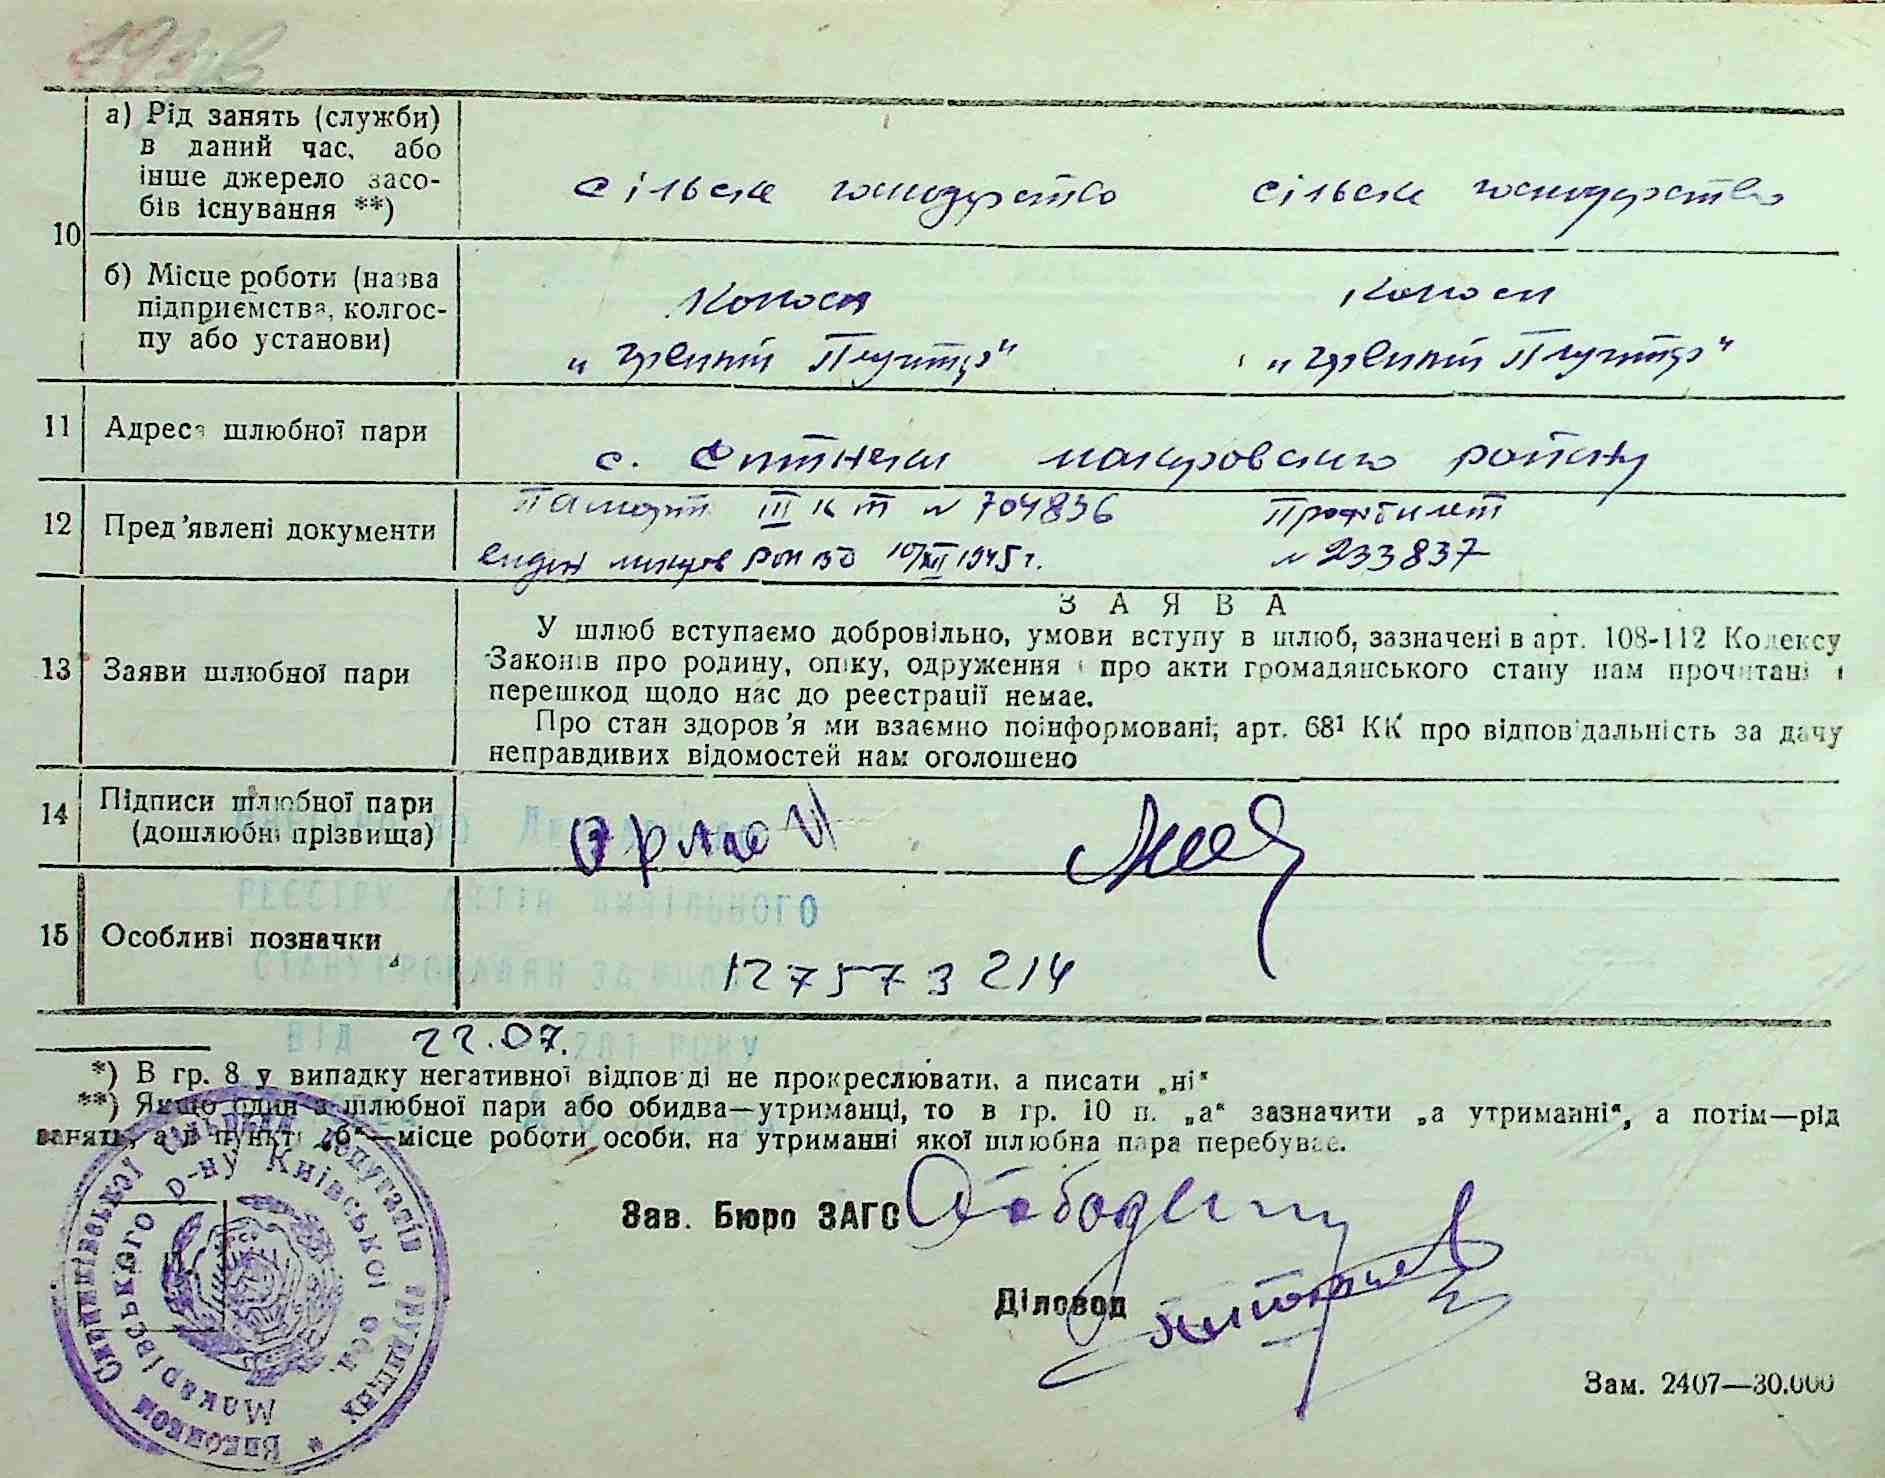 10
а) Рід занять (служби)
в даний час, або
інше джерело засо-
бів існування **)
сільске господарство сільске господарство
б) Місце роботи (назва
підприємства, колгос-
пу або установи)
Колгосп Колгосп
11 Адреса шлюбної пари
с. Ситняки макаровского району
12 Пред'явлені документи
Паспорт III к т № 704836 Профбилет
1945 г. № 233837
З А Я В А
13 Заяви шлюбної пари
У шлюб вступаємо добровільно, умови вступу в шлюб, зазначені в арт. 108-112 Кодексу
Законів про родину, опіку, одруження і про акти громадянського стану нам прочитані і
перешкод щодо нас до реєстрації немає.
Про стан здоров'я ми взаємно поінформовані; арт. 68¹ КК про відповідальність за дачу
неправдивих відомостей нам оголошено
14 Підписи шлюбної пари
(дошлюбні прізвища)
РЕЄСТРУ АКТІВ ЦИВІЛЬНОГО
15 Особливі позначки
СТАНУ ГРОМАДЯН ЗА
127573214
ВІД 22.07. РОКУ
*) В гр. 8 у випадку негативної відповіді не прокреслювати, а писати „ні“
**) Якщо один з шлюбної пари або обидва—утриманці, то в гр. 10 п. „а“ зазначити „а утриманні“, а потім—рід
занять, а в пункті „б“—місце роботи особи, на утриманні якої шлюбна пара перебуває.
Зав. Бюро ЗАГС
Діловод
Виконком Ситняківської сільради депутатів трудящих
Макарівського р-ну Київської обл.
Зам. 2407—30.000